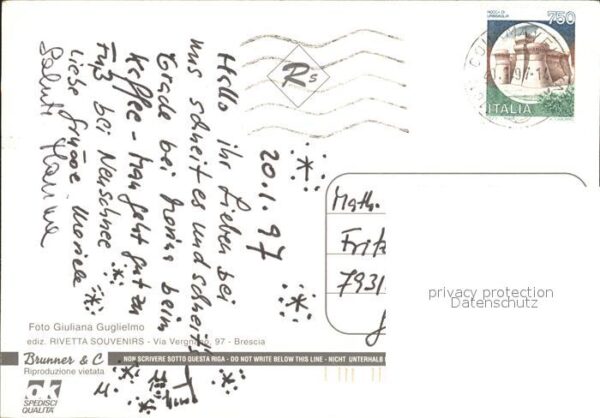 20.1.97
Hallo ihr Lieben bei
uns schneit es und schneit
Grade bei Marina beim
Kaffee - Man geht gut zu
Fuß bei Neuschnee
Liebe Grüsse Mariele
Saluti Marina
ROCCA DI
URBISAGLIA
750
ITALIA
Rs
Math.
Fritz
7931
privacy protection
Datenschutz
Foto Giuliana Guglielmo
ediz. RIVETTA SOUVENIRS - Via Vergnano, 97 - Brescia
Brunner & C
NON SCRIVERE SOTTO QUESTA RIGA - DO NOT WRITE BELOW THIS LINE - NICHT UNTERHALB
Riproduzione vietata
ok
SPEDISCI
QUALITÀ